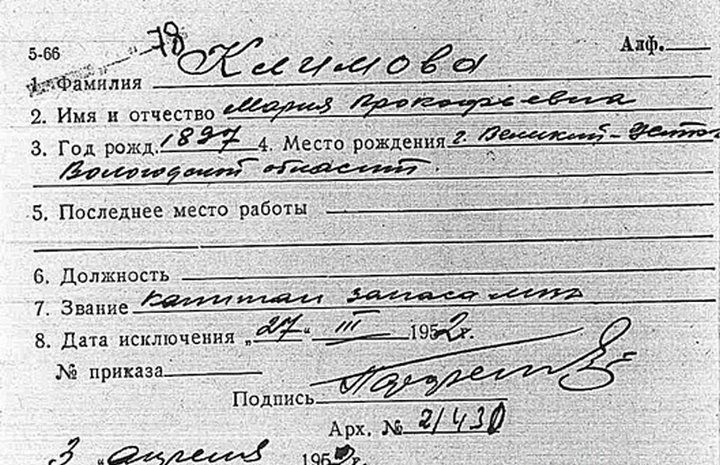 78
5-66 Алф.
1. Фамилия Климова
2. Имя и отчество Мария Прокофьевна
3. Год рожд. 1897 4. Место рождения г. Великий-Устюг
Вологодской области.
5. Последнее место работы
6. Должность
7. Звание капитан запаса
8. Дата исключения „27" III 1952г.
№ приказа
Подпись
Арх. № 21430
3 „апреля 1952г.